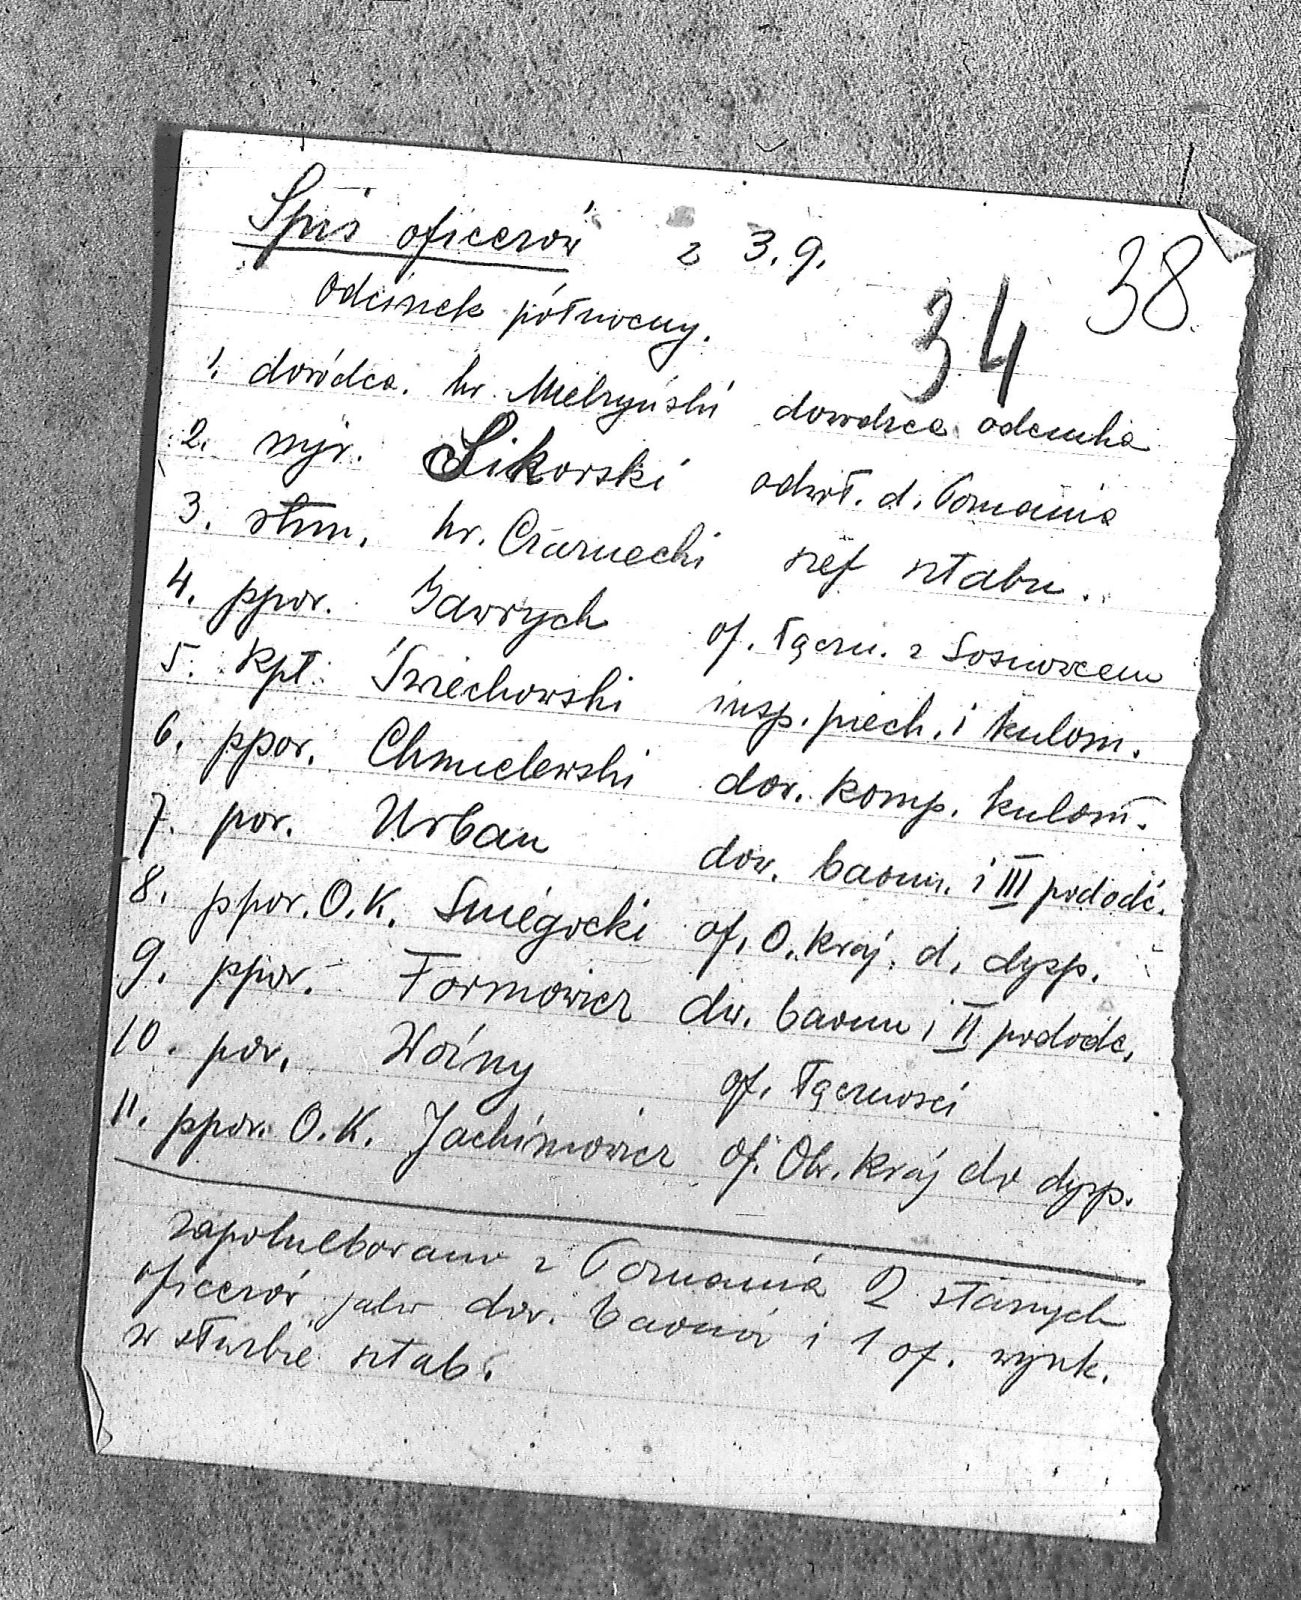 Spis oficerów z 3.9.
38.
odcinek północny.
34
1. dowódca. hr. Mielżyński dowódca odcinka
2. mjr. Sikorski odwoł. d. Poznania
3. rtm. hr. Czarnecki szef sztabu.
4. ppor. Gawrych of. łączn. z Sosnowcem
5. kpt. Śwriechowski insp. piech. i kulom.
6. ppor. Chmielewski dow. komp. kulom.
7. por. Urban dow. baonu. i III pododc.
8. ppor. O.K. Śniegocki of. O. Kraj. d. dysp.
9. ppor. Formowicz dw. baonu i II pododc.
10. por. Woźny of. łączności
11. ppor. O.K. Jachimowicz of. Obr. Kraj do dysp.
zapotrzebowano z Poznania 2 starszych
oficerów jako dow. baonów i 1 of. wyszk.
w służbie sztab.